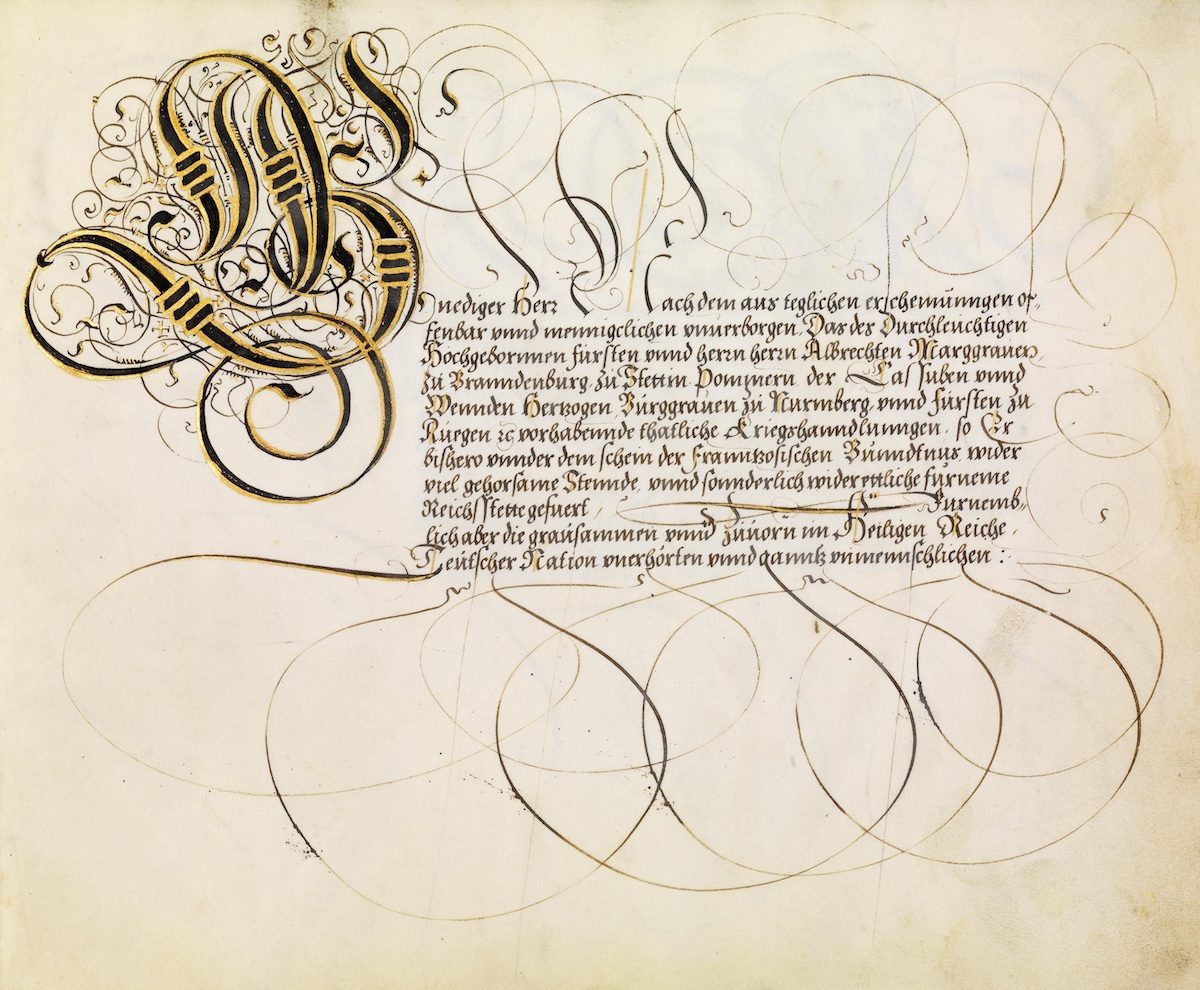 Gnediger Herr Nach dem aus teglichen erscheinunngen of-
fenbar vnnd mennigclichen vnuerborgen, Das der Durchleuchtigen
Hochgebornnen fürsten vnnd herrn herrn Albrechten Marggrauen,
zu Branndenburg, zu Stettin Pommern der Cassuben vnnd
Wennden Hertzogen, Burggrauen zu Nurmberg, vnnd fürsten zu
Ruegen ꝛc vorhabennde thatliche Kriegshanndlunngen, so Er
bishero vnnder dem schein der Franntzosischen Bunndtnus, wider
viel gehorsame Stennde, vnnd sonnderlich wider ettliche furneme
Reichsstette gefuert, Furnemb-
lich aber die grausammen vnnd zuuorn im Heiligen Reiche,
Teutscher Nation vnerhörten vnnd ganntz vnmennschlichen :